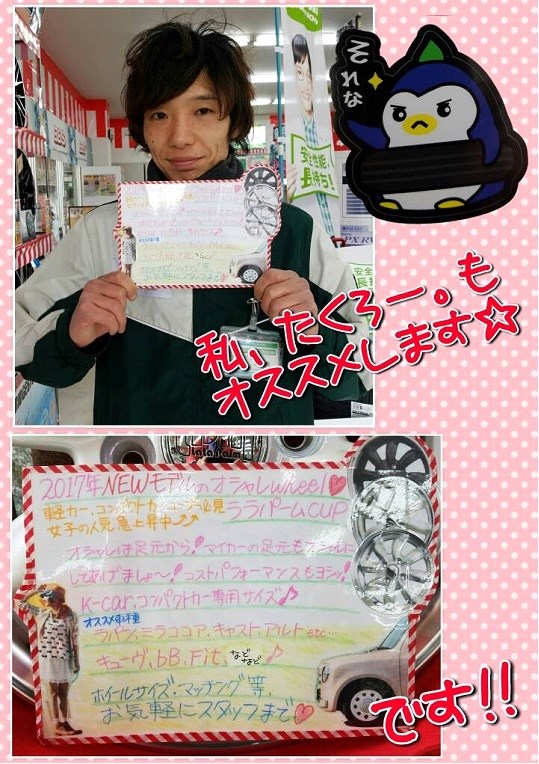 それな
安全性能、
長持ち!
私、たくろー。も
オススメします☆
LaLa Palm
2017年NEWモデルのオシャレwheel♥
軽カー、コンパクトカー
必見
女子の人気急上昇中⤴⤴
ララパームCUP
オシャレは足元から!マイカーの足元も
してあげましょ〜!コストパフォーマンスもヨシ!
K-carコンパクトカー専用サイズ♪
オススメ車種
ラパン、ミラココア、キャスト、アルトetc…
キューヴ、bB、Fit、などなど♪
ホイールサイズ・マッチング等、
お気軽にスタッフまで♥
です!!